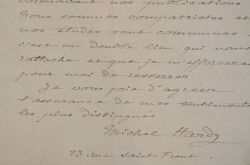 concernant nos publications
Nous sommes compatriotes et
nos études sont communes
c'est un double lien qui nous
rattache et que je m'efforcerai
pour moi de resserrer.
Je vous prie d'agréer
l'assurance de mes sentiments
les plus distingués
Michel Hardy
23 rue Saint Front.